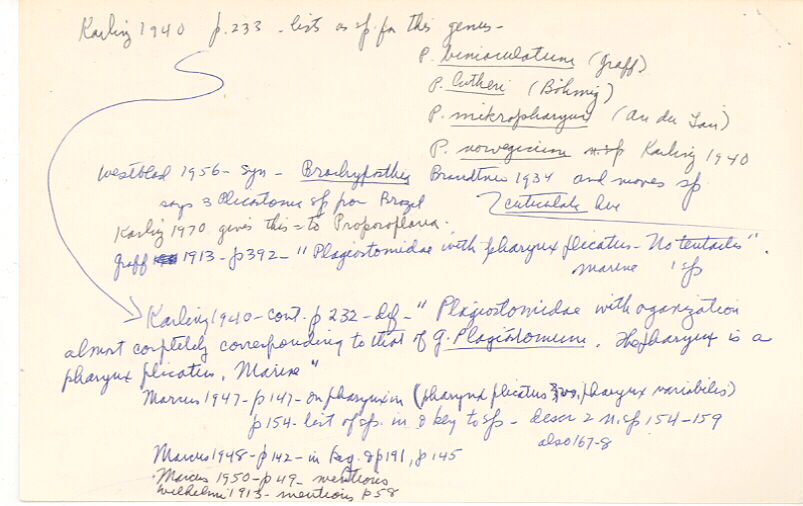 Karling 1940 p.233 - lists as sp. for this genus -
P. bimaculatum (Graff)
P. lutheri (Böhmig)
P. mikropharynx (An der Lan)
P. norvegicum n.sp Karling 1940
Westblad 1956 - syn - Brachyposthia Brandtner 1934 and moves sp
says 3 Plicastoma sp from Brazil cuticulata here
Karling 1970 gives this = to Proporoplana.
Graff 1913 - p392 - "Plagiostomidae with pharynx plicatus - No tentacles".
marine 1 sp
Karling 1940 - cont. p 232 - def - "Plagiostomidae with oganization
almost completely corresponding to that of g. Plagiostomum. The pharynx is a
pharynx plicatus. Marine"
Marcus 1947 - p 147 - on pharynx in (pharynx plicatus vs. pharynx variabilis)
p 154 - list of sp. in & key to sp - descr 2 n.sp 154-159
also 167-8
Marcus 1948 - p 142 - in key. & p 191, p 145
Marcus 1950 - p 49 - mentions
Wilhelmi 1913 - mentions p 58